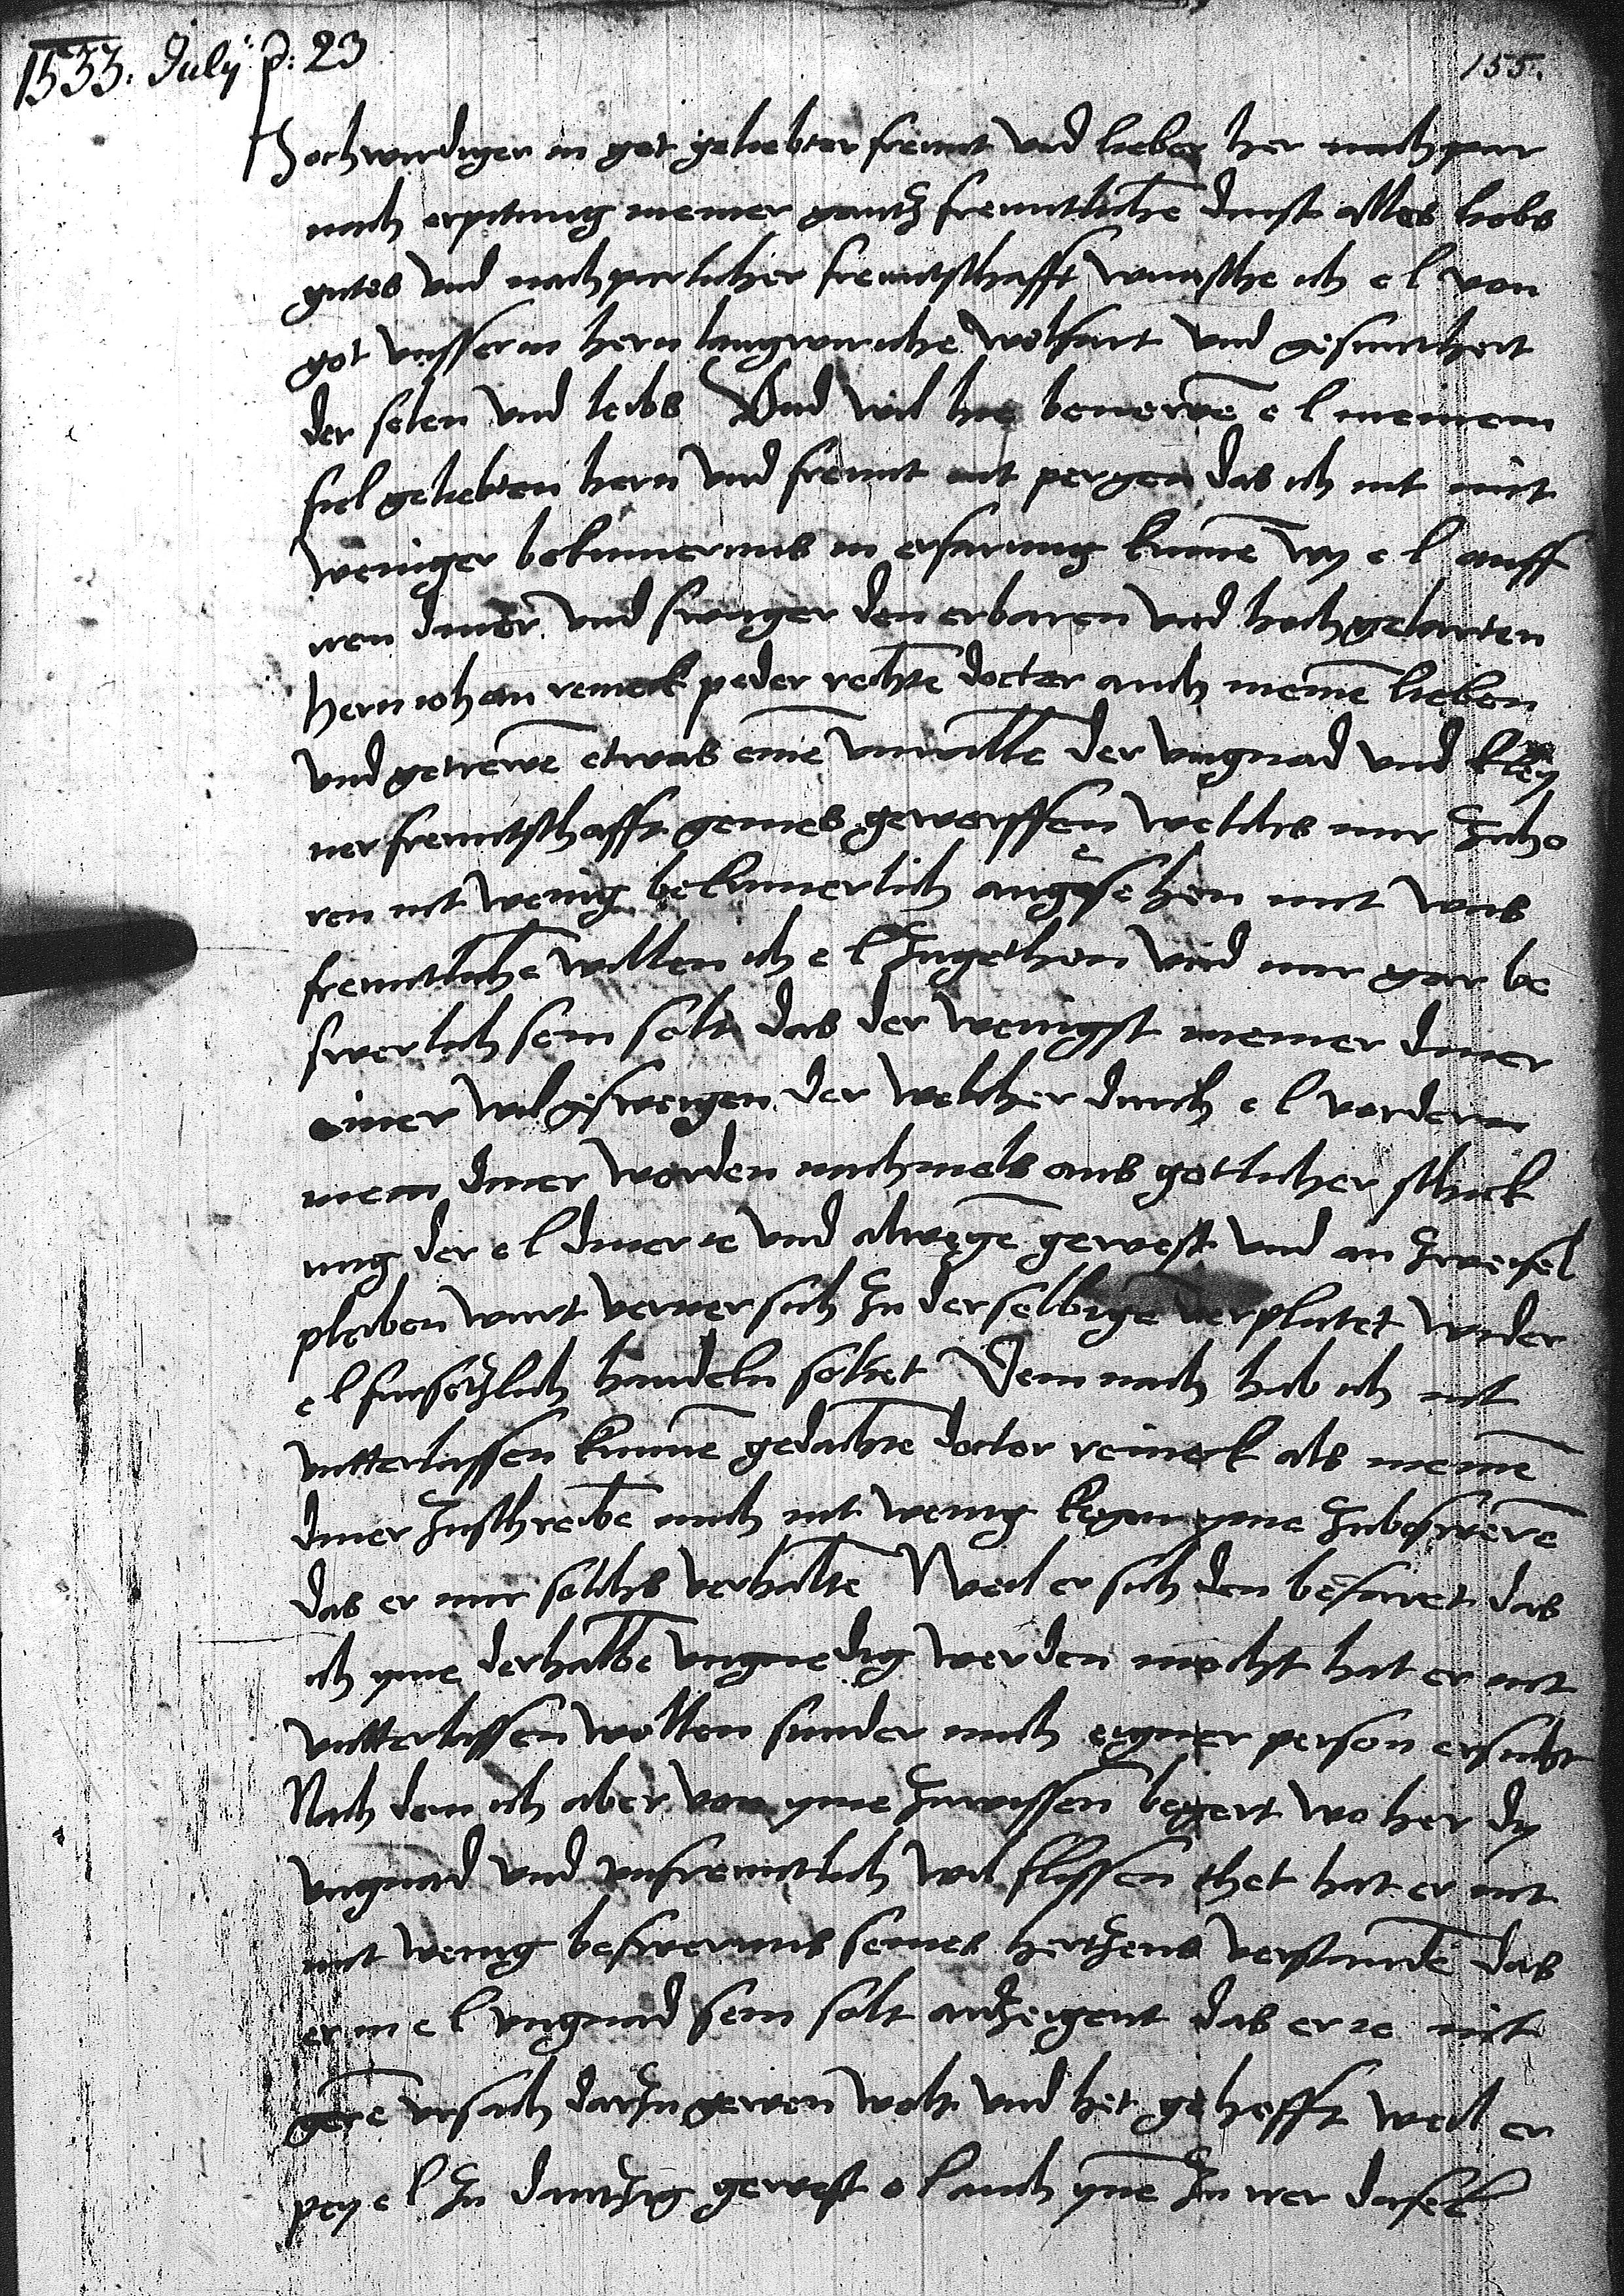 1533. July d: 23
155.
Hochwirdiger in got geliebter freunt und lieber her nachpar
nach erpitung meiner gantz freuntliche dinst alles liebs
gutes und nachparlicher freuntschafft wunsche ich e l von
got unsserm hern langwiriche wolfart und gesuntheit
der selen und leibs Und wil hie benerwe e l meinem
fiel geliebten hern und freunt nit pergen das ich nit mit
weniger bekumernus in erfarung kume wy e l auff
iren diner und swoger den erbaren und hochgelarten
hern iohan reineck peder rechte docter auch meine lieben
und getrewe etwas eine unwille der ungnad und kley
ner freuntschafft gemes geworffen welchs mir zuho
ren nit wenig bekumerlich angesehen mit was
freuntliche willen ich e l zugethon und mir gar be
swerlich sein solt das der wenigst meiner diner
einer wil gesweigen der welcher durch e l vordern
mein diner worden nachmals aus gotlicher schick
ung der e l diner ie und alwege gewest und an zweifel
pleiben wirt verner sich zu derselbige verplutet wider
e l fursetzlich handeln soltet Dem nach hab ich nit
untterlassen kunne gedachte doctor reineck als meine
diner zuschreibe mich nit wenig kegen yme zubeswere
das er mir solchs verhalte Weil er sich den befaret das
ich yme derhalbe ungnedig werden mocht hat er nit
untterlassen wollen sunder mich eigner person ersucht
Nach dem ich aber von yme zuwissen begert wo her dy
ungnad und unfreuntlich wil flissen thet hat er mit
nit wenig beswernus seines hertzens verstande das
er in e l ungnad sein solt antzeigent das er ie nit
gere ursach dartzu gewen wolt und het gehofft weil er
pey e l zu dantzig gewest e l auch yme zu irer dasel